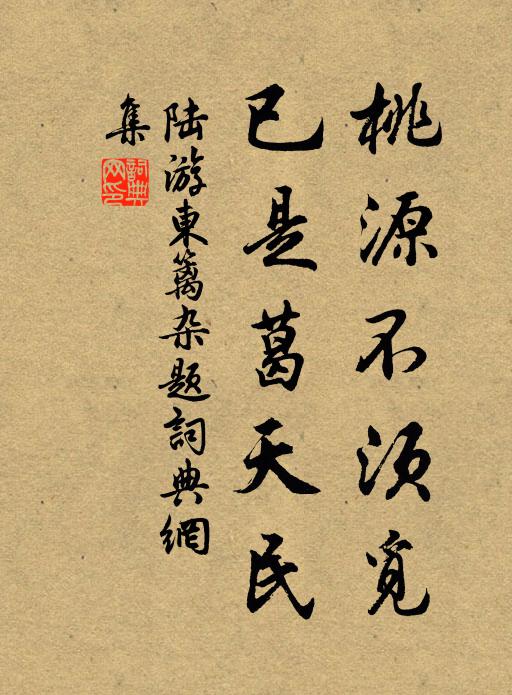 桃源不须觅
已是葛天民
陆游東籬杂题詞典網
集
詞典网印